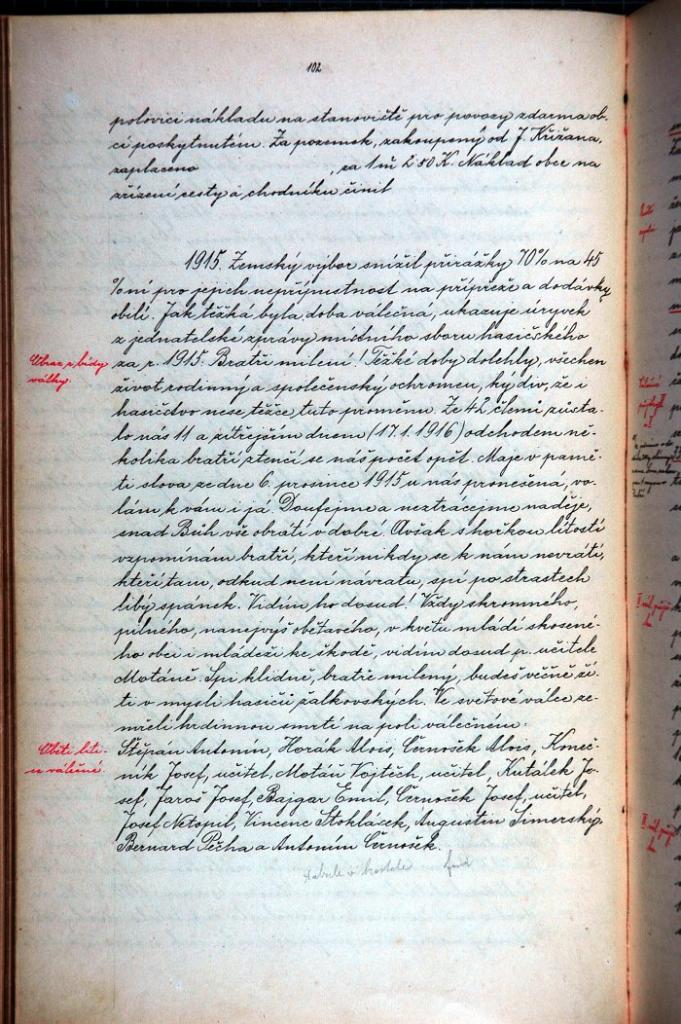 102
polovici nákladu na stanoviště pro povozy zdarma ob-
cí poskytnutém. Za pozemek, zakoupený od J. Křižana,
zaplaceno , za 1 m² 80 K. Náklad obce na
zřízení cesty a chodníku činil
1915. Zemský výbor snížil přirážky 70% na 45
%ní pro jejich nepřípustnost na přípřeže a dodávky
obilí. Jak těžká byla doba válečná, ukazuje úryvek
z jednatelské zprávy místního sboru hasičského
Obraz z bídy
války.
za r. 1915. Bratři milení! Těžké doby dolehly, všechen
život rodinný a společenský ochromen, ký div, že i
hasičstvo nese těžce tuto proměnu. Ze 42 členů zůsta-
lo nás 11 a zítřejším dnem (17.1.1916) odchodem ně-
kolika bratří ztenčí se náš počet opět. Maje v pamě-
ti slova ze dne 6. prosince 1915 u nás pronešená, vo-
lám k vám i já. Doufejme a neztrácejme naděje,
snad Bůh vše obrátí v dobré. Avšak s hořkou lítostí
vzpomínám bratří, kteří nikdy se k nam nevrátí,
kteří tam, odkud není návratu, spí po strastech
libý spánek. Vidím ho dosud! Vždy skromného,
pilného, nanejvýš obětavého, v květu mládí skosené-
ho obci i mládeži ke škodě, vidím dosud p. učitele
Motáně. Spi klidně, bratře milený, budeš věčně ží-
ti v mysli hasičů žalkovských. Ve světové válce ze-
mřeli hrdinnou smrtí na poli válečném:
Oběti bite-
v válečné.
Štěpán Antonín, Horák Alois, Černošek Alois, Kmeč-
ník Josef, učitel, Motáň Vojtěch, učitel, Kutálek Jo-
sef, Jaroš Josef, Bajgar Emil, Černošek Josef, učitel,
Josef Netopil, Vincenc Stoklásek, Augustin Šimerský,
Bernard Pěcha a Antonín Černošek.